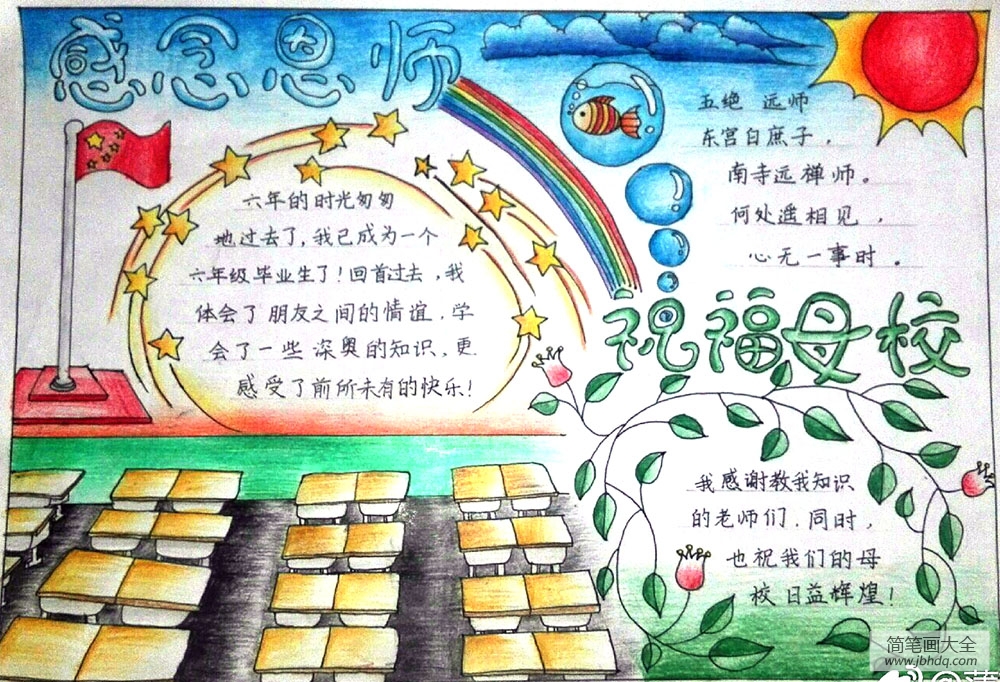 感念恩师
六年的时光匆匆
地过去了,我已成为一个
六年级毕业生了!回首过去,我
体会了朋友之间的情谊,学
会了一些深奥的知识,更
感受了前所未有的快乐!
五绝 远师
东宫白庶子,
南寺远禅师。
何处遥相见,
心无一事时。
祝福母校
我感谢教我知识
的老师们.同时,
也祝我们的母
校日益辉煌!
简笔画大全
www.jbhdq.com